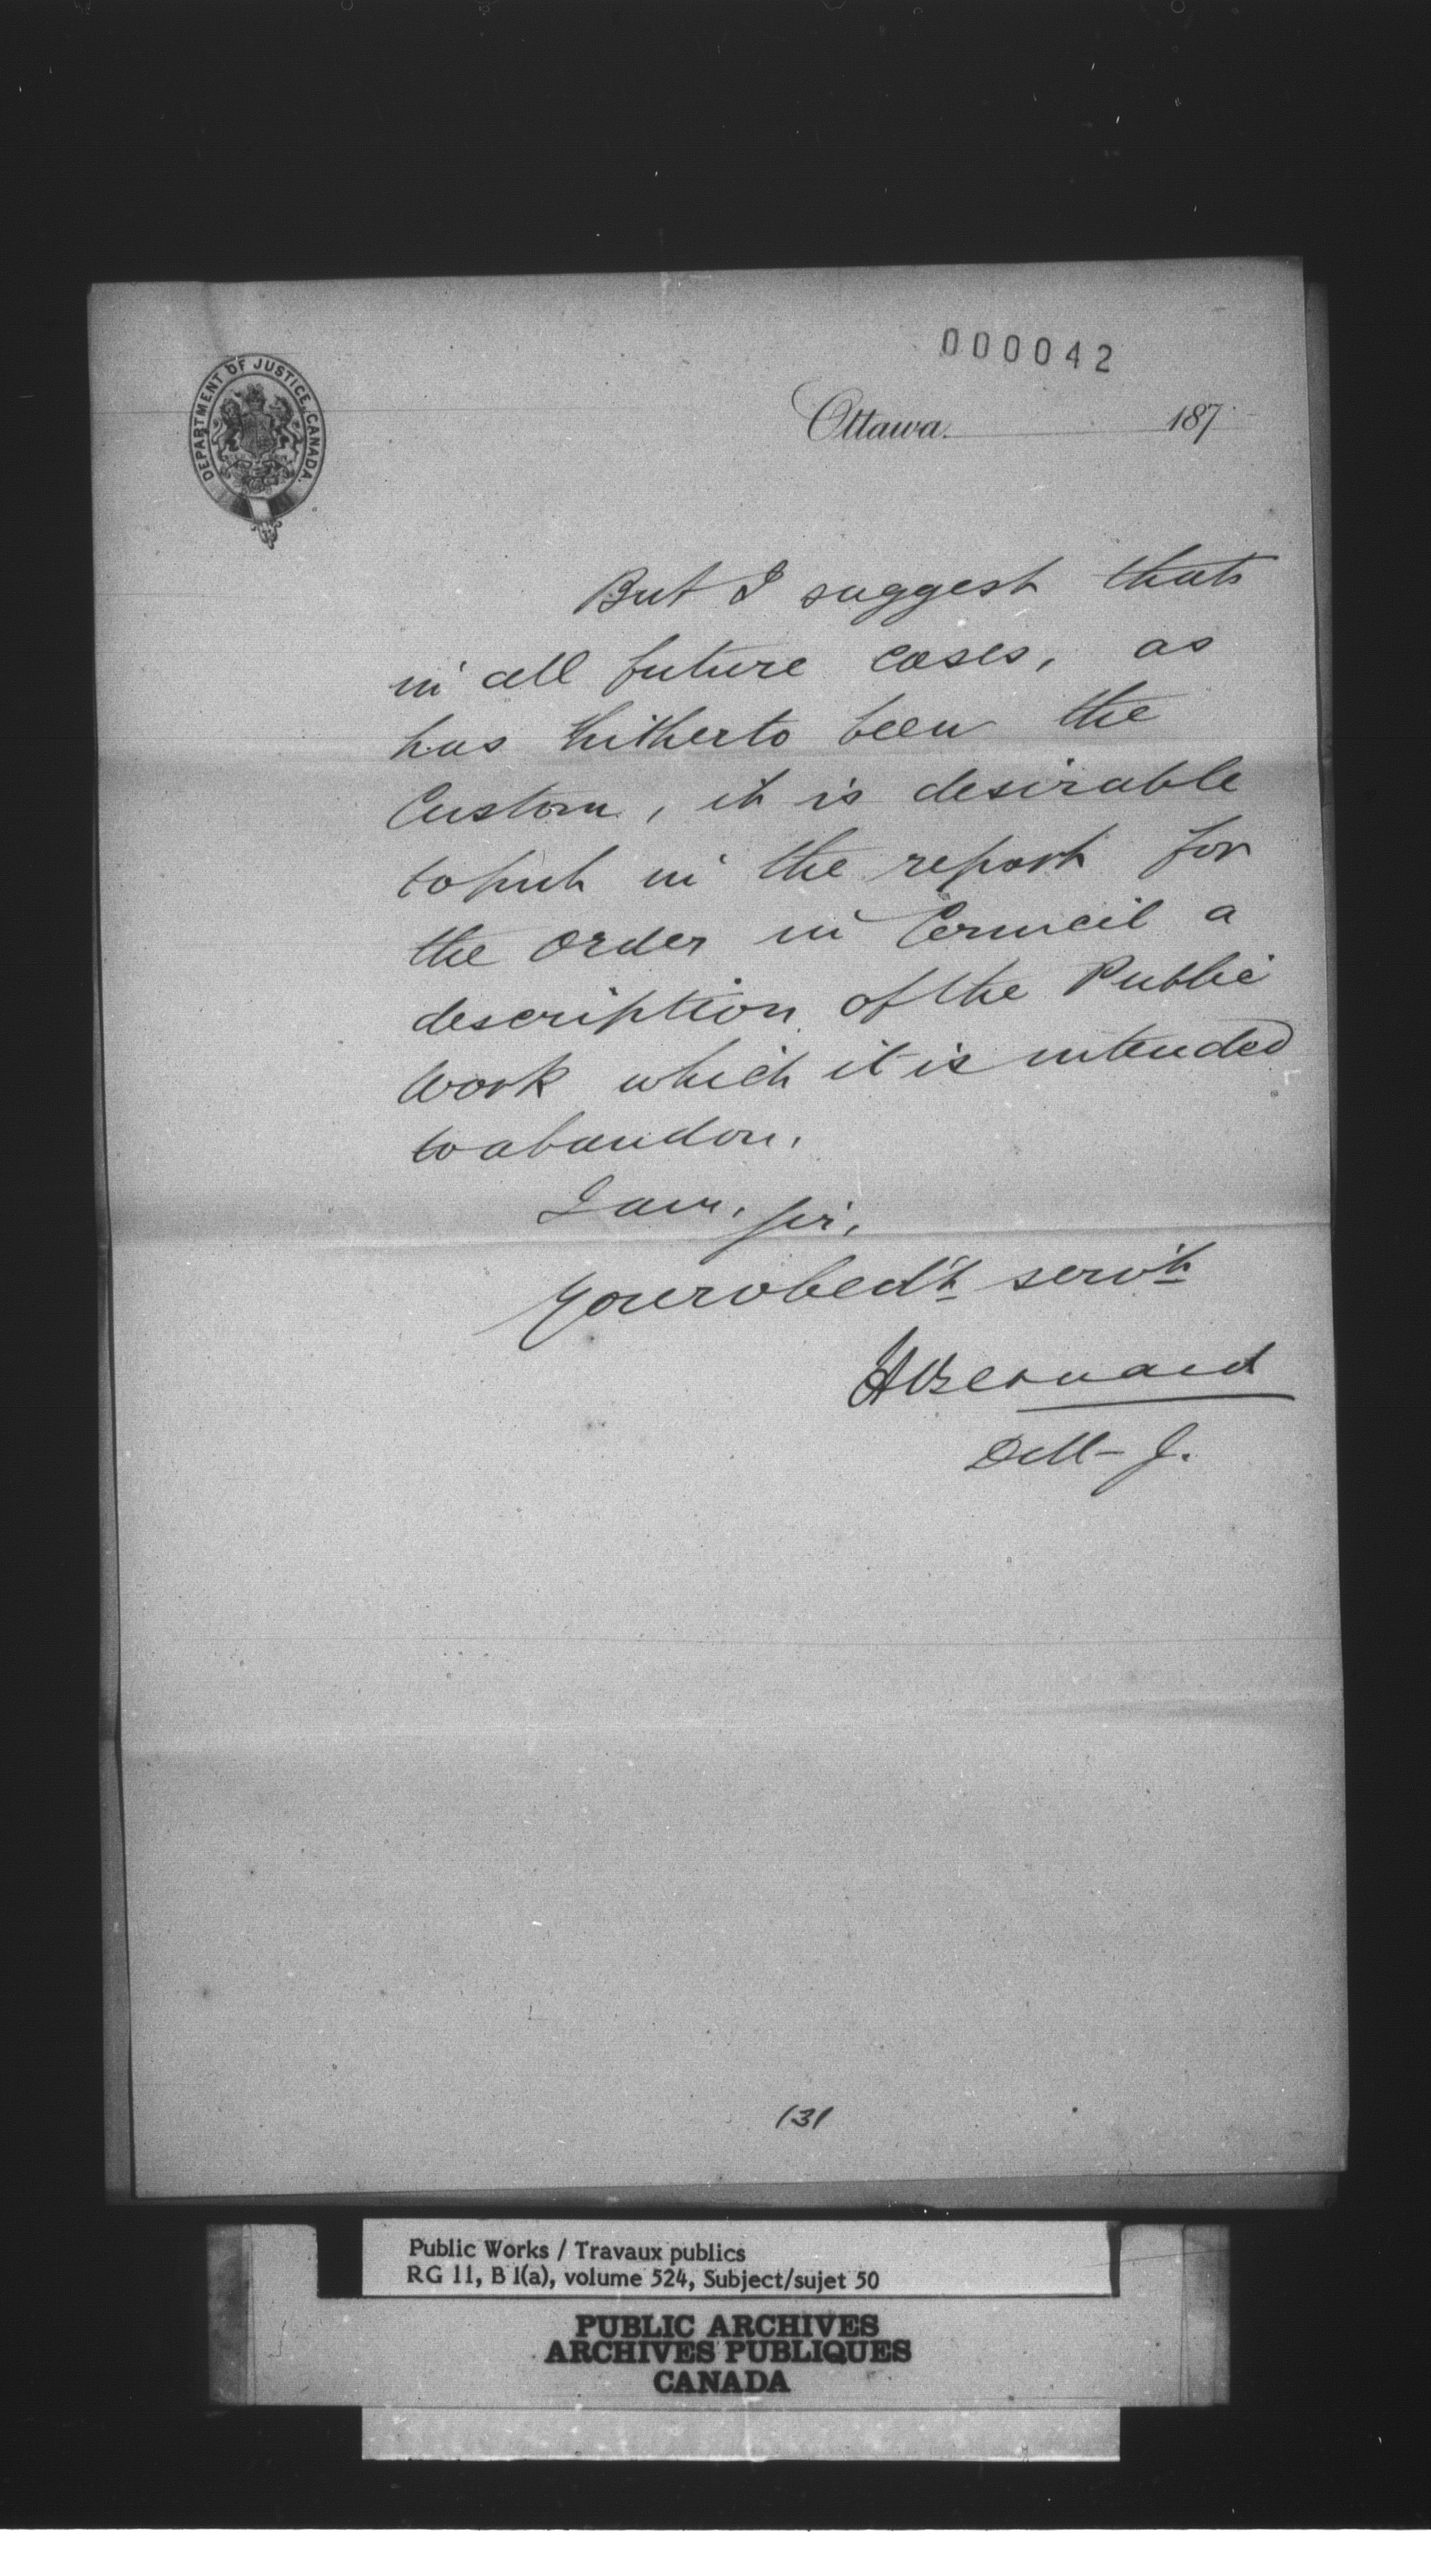 000042
DEPARTMENT OF JUSTICE, CANADA.
Ottawa. 187
But I suggest that
in all future cases, as
has hitherto been the
Custom, it is desirable
to put in the report for
the Order in Council a
description of the Public
Work which it is intended
to abandon.
I am, Sir,
Your obed't serv't
H Bernard
D M - J.
131
Public Works / Travaux publics
RG 11, B 1(a), volume 524, Subject/sujet 50
PUBLIC ARCHIVES
ARCHIVES PUBLIQUES
CANADA